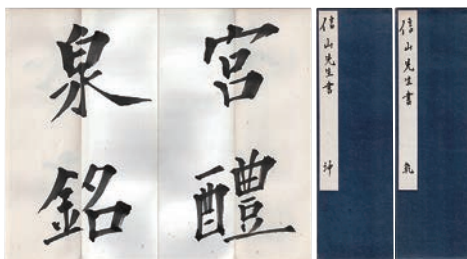 宮醴
泉銘
信山先生書 乾
信山先生書 坤